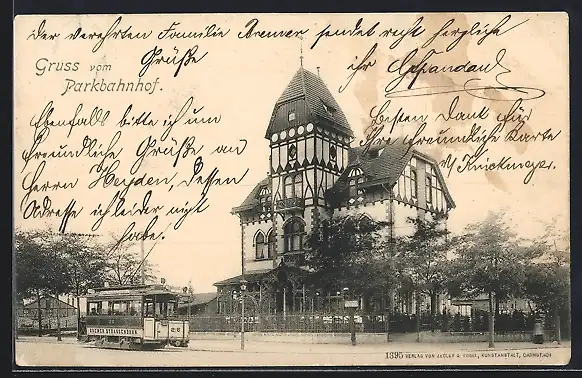 Der verehrten Familie Bremer sendet recht herzliche
Grüße
ihr
Gruss vom
Parkbahnhof.
Ebenfalls bitte ich um
freundliche Grüße an
Herrn Heyden, dessen
Adresse ich leider nicht
habe.
Besten Dank für
Ihre freundliche Karte
BREMER STRASSENBAHN
1895 VERLAG VON ZEDLER & VOGEL, KUNSTANSTALT, DARMSTADT